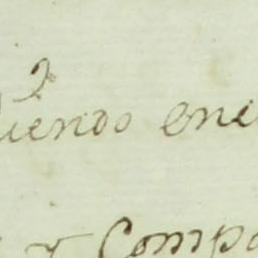 iendo ene
y Compa